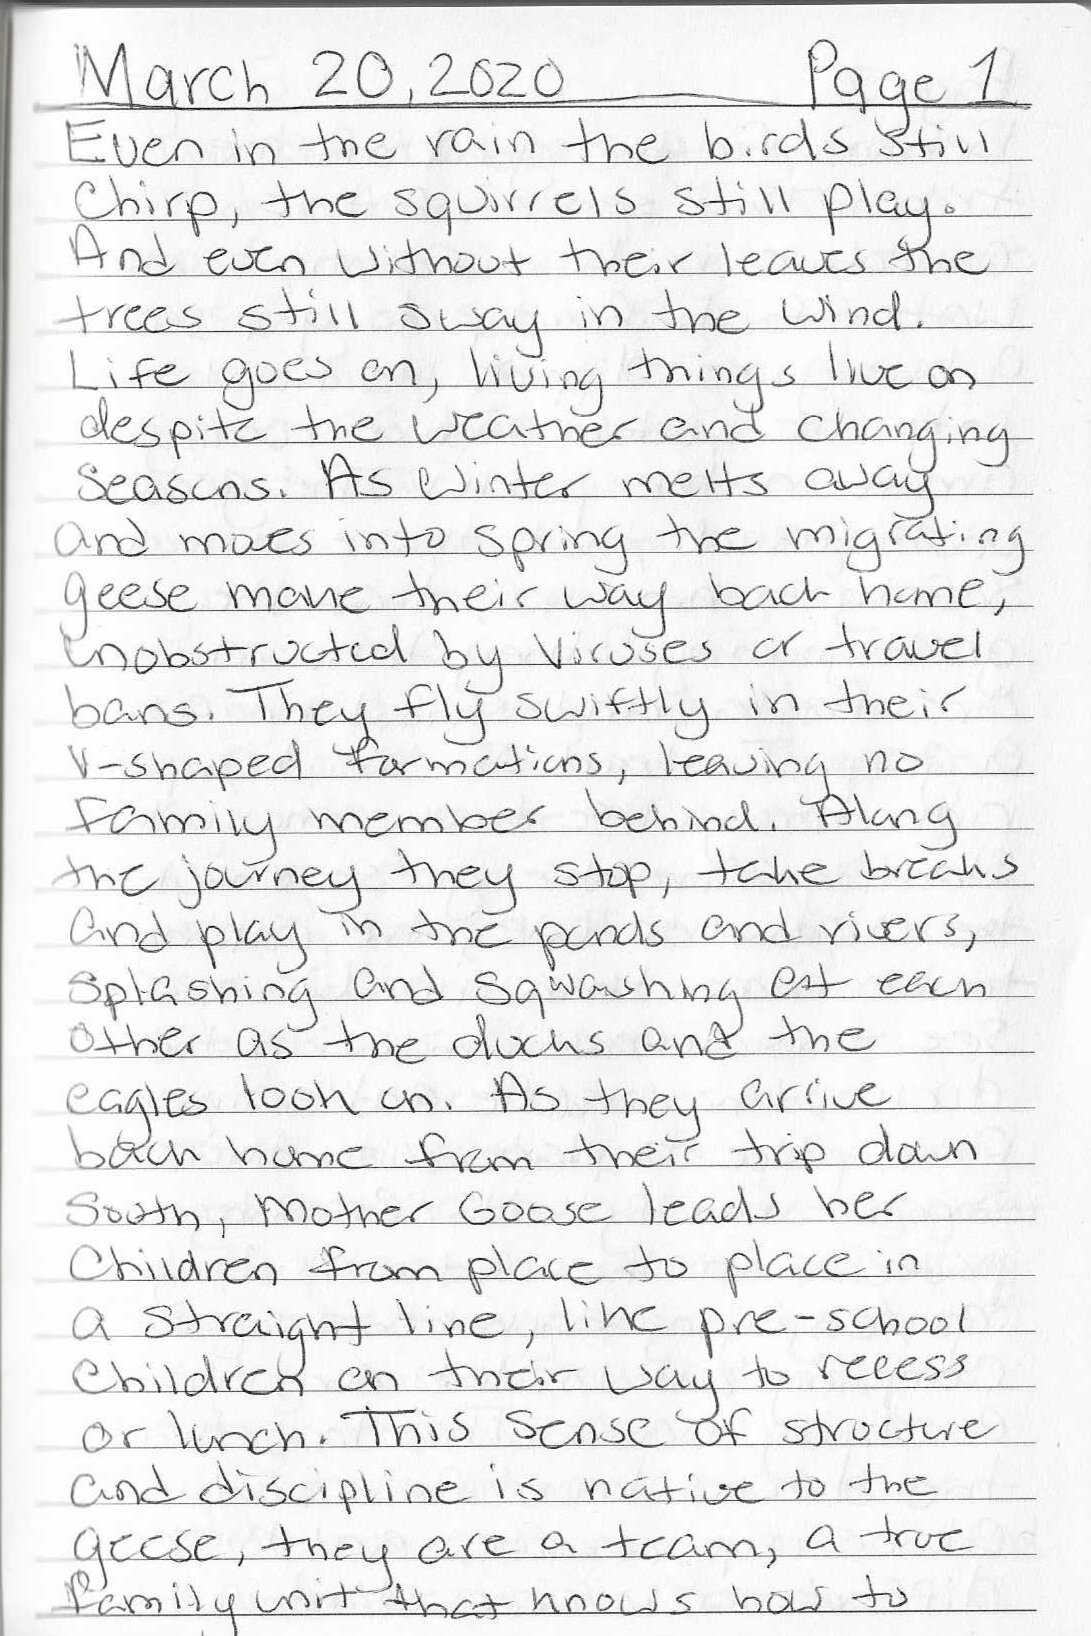 March 20, 2020 Page 1
Even in the rain the birds still
chirp, the squirrels still play.
And even without their leaves the
trees still sway in the wind.
Life goes on, living things live on
despite the weather and changing
seasons. As Winter melts away
and moves into spring the migrating
geese make their way back home,
unobstructed by viruses or travel
bans. They fly swiftly in their
V-shaped formations, leaving no
family member behind. Along
the journey they stop, take breaks
and play in the ponds and rivers,
splashing and squawking at each
other as the ducks and the
eagles look on. As they arrive
back home from their trip down
South, Mother Goose leads her
children from place to place in
a straight line, like pre-school
children on their way to recess
or lunch. This sense of structure
and discipline is native to the
geese, they are a team, a true
family unit that knows how to